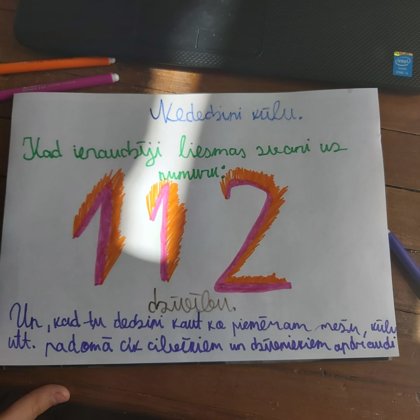 Nededzini kūlu.
Kad ieraudzīji liesmas zvani uz
numuru:
112
dzīvību.
Un, kad tu dedzini kaut ko piemēram mežu, kūlu
utt. padomā cik cilvēkiem un dzīvniekiem apdraudi
intel